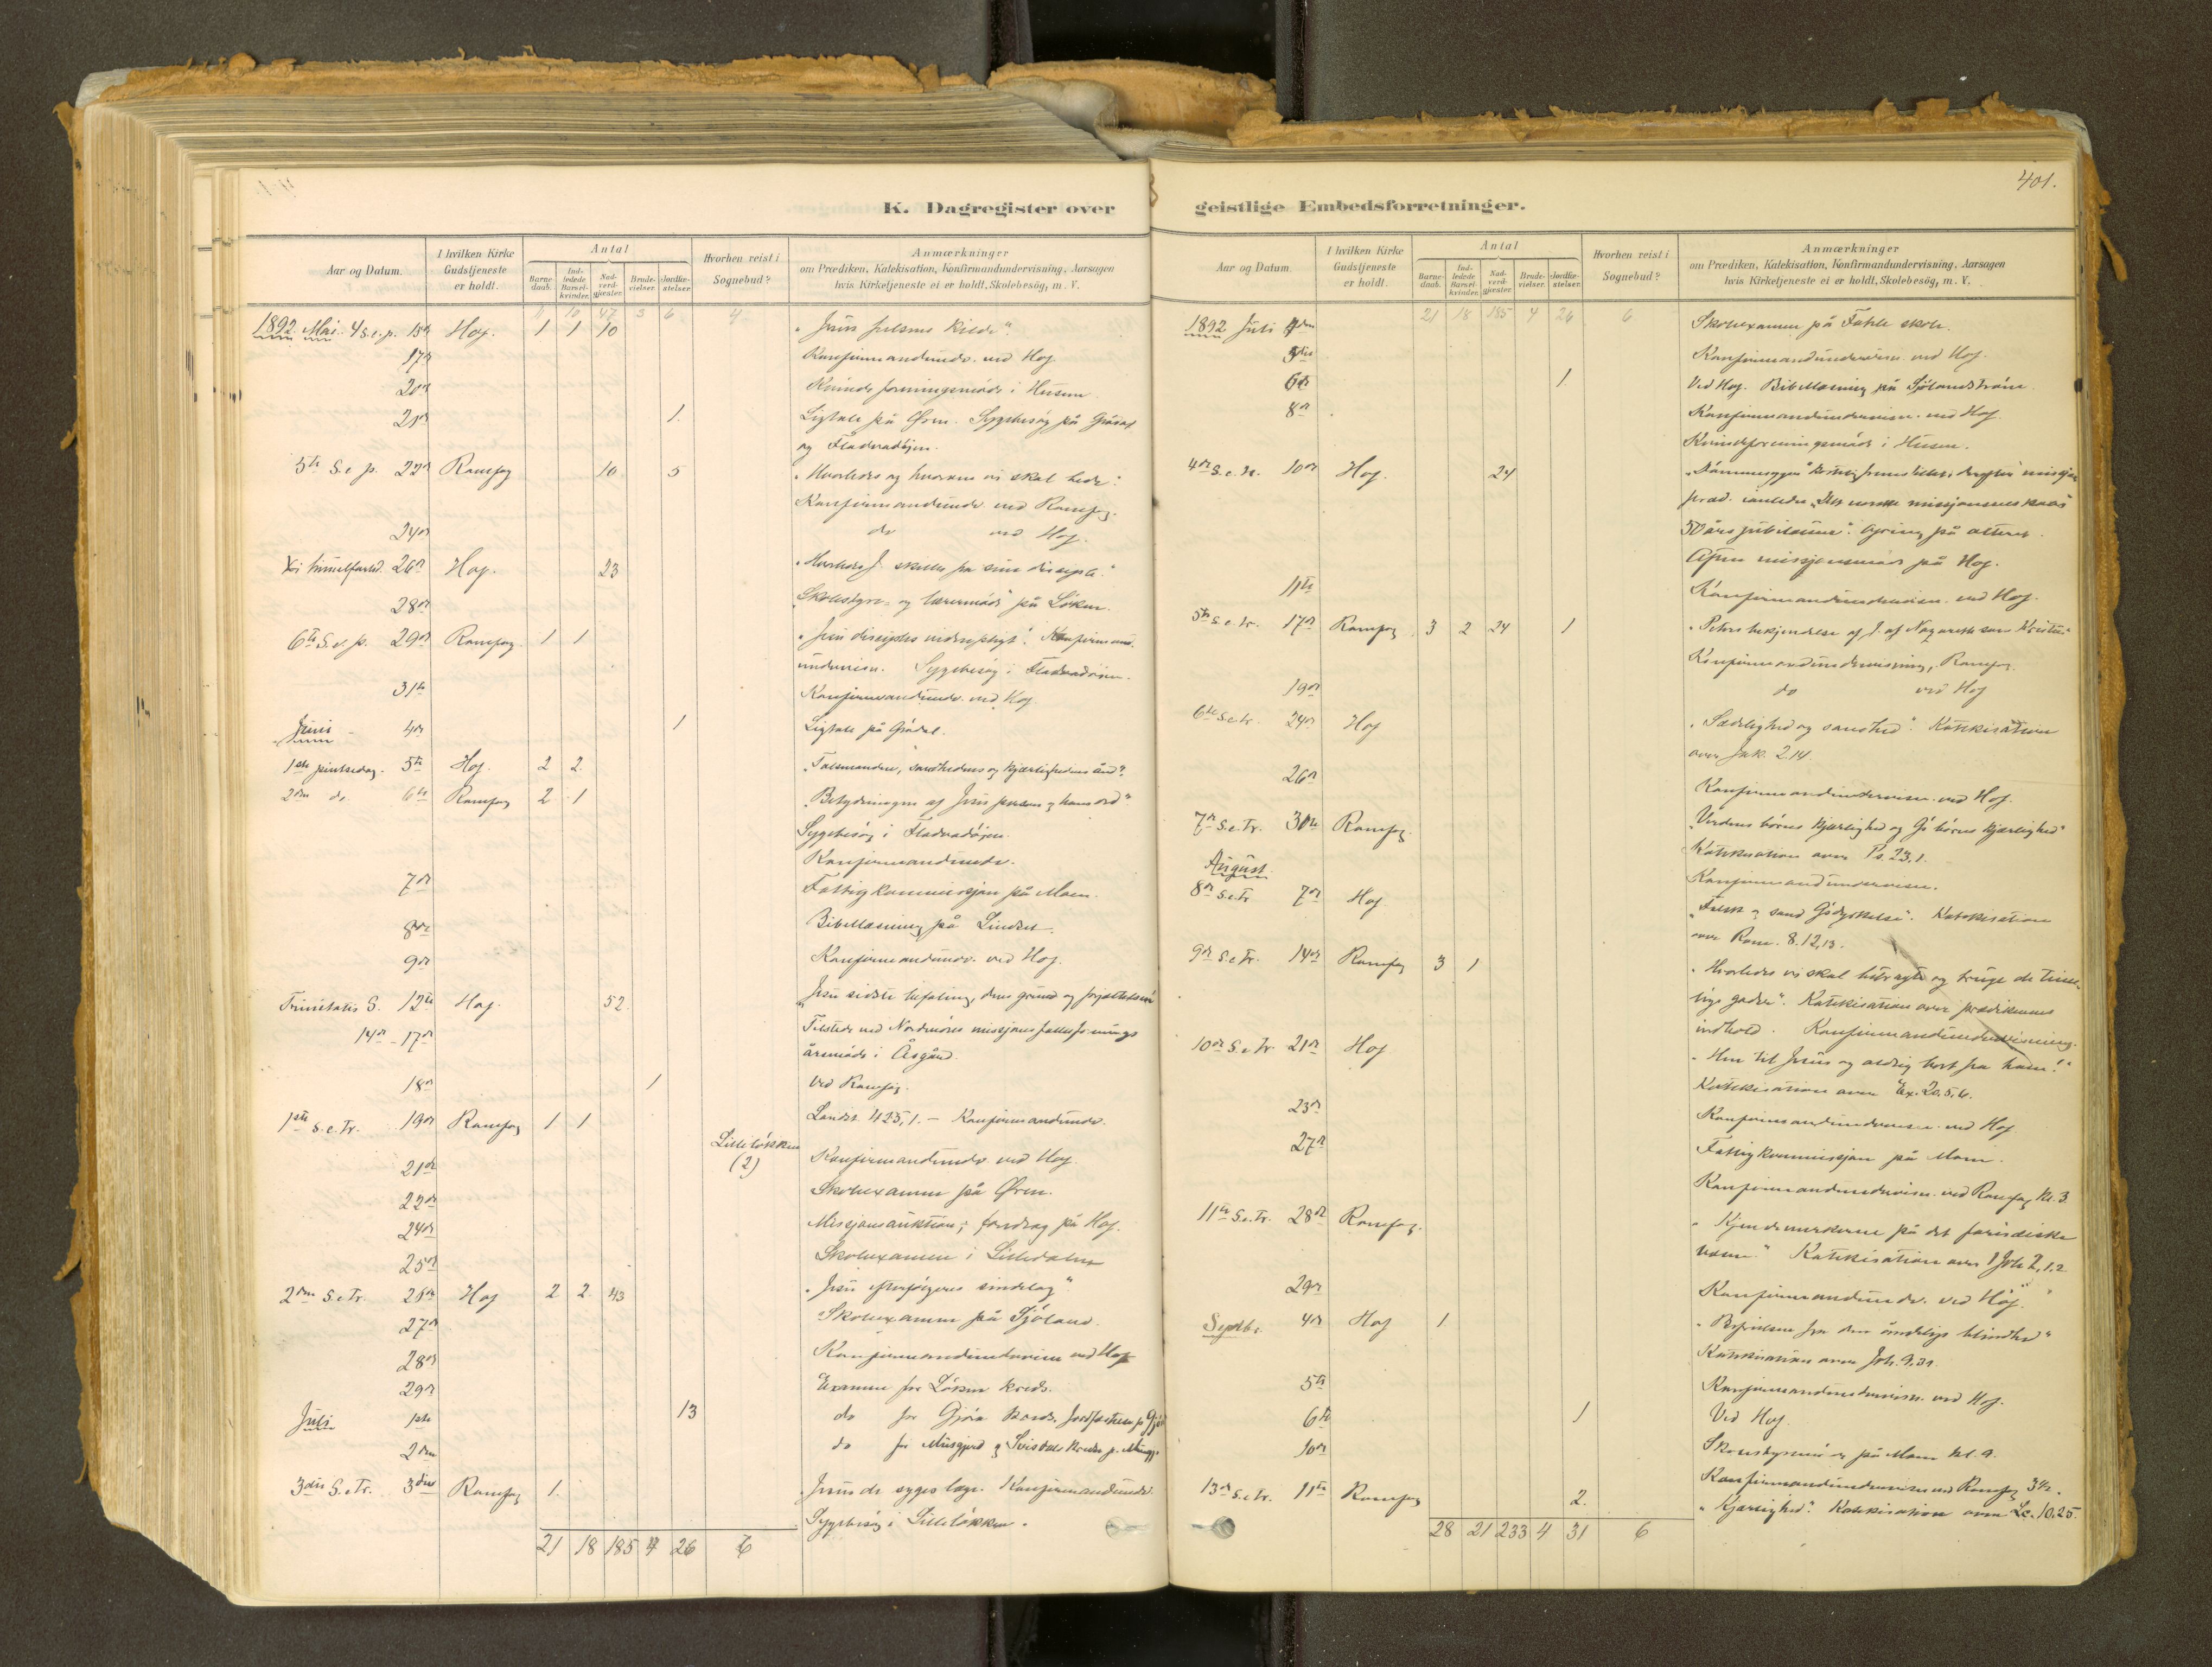 K. Dagregister over
Aar og Datum.
I hvilken Kirke Gudstjeneste er holdt.
Antal
Barne-daab.
Ind-ledede Barsel-kvinder.
Nad-verd-gjester
Brude-vielser
Jordfæ-stelser
Hvorhen reist i Sognebud?
Anmærkninger
om Prædiken, Katekisation, Konfirmandundervisning, Aarsagen
hvis Kirketjeneste ei er holdt, Skolebesög, m. V.
11 10 47 3 6 4
1892 Mai 4 S. e. p. 15de Hof. 1 1 10 "Jesus
17de Konfirmandundv. ved Hof.
20de Kvindeforeningsmöde i Husum
21de 1. Ligtale på Øren. Sygebesög på
og Fladvadöjen.
5te S. e. p. 22de Romfog 10 5 "Hvorledes og hvorom vi skal bede".
Konfirmandundv. ved Romfog.
24de do ved Hof.
Kri himmelfartsd. 26de Hof. 23 "Hvorledes J. skilles fra sine disciple."
28de Skolestyre- og lærermöde på Löken.
6te S. e. p. 29de Romfog 1 1 "Jesu disciples vidnepligt". Konfirmand-
undervisn. Sygebesög i Fladvadöien.
31te Konfirmandundv. ved Hof
Juni 4de 1 Ligtale på Grödal.
1ste pintsedag. 5te Hof. 2 2 "Talsmanden, sandhedens og kjærlighedens ånd".
2den do 6te Romfog 2 1 "Betydningen af Jesu person og hans ord".
Sygebesög i Fladvadöjen.
Konfirmandundv.
7de Fattigkommissjon på Moen.
8de Bibellæsning på Lindset.
9de Konfirmandundv. ved Hof.
Trinitatis S. 12te Hof. 52 "Jesu sidste befaling, dens grund og
14de - 17de Tilstede ved Nordmöres missjons
årsmöde i Åsgård.
18de 1 Ved Romfog.
1ste S. e. Tr. 19de Romfog 1 1 Landst. 425,1. — Konfirmandundv.
Lillelökken
(2)
21de Konfirmandundv ved Hof.
22de Skolexamen på Øren.
24de Missjonsauktion; foredrag på Hof.
25de Skolexamen i Lilledalen
2den S. e. Tr. 26de Hof 2 2 43 "Jesu efterfölgeres sindelag"
27de Skolexamen på Fjöland.
28de Konfirmandundervisn ved Hof
29de Examen for Löken kreds.
Juli 1ste 13 do for Gjöra kreds.
2den do for Musgjerd og
3die S. e. Tr. 3die Romfog 1. Jesus de syges læge. Konfirmandundv.
Sygebesög i Lillelökken.
21 18 185 4 26 6
401.
geistlige Embedsforretninger.
Aar og Datum
I hvilken Kirke Gudstjeneste er holdt.
Antal
Barne-daab.
Ind-ledede Barsel-kvinder.
Nad-verd-gjester
Brude-vielser
Jordfæ-stelser
Hvorhen reist i Sognebud?
Anmærkninger
om Prædiken, Katekisation, Konfirmandundervisning, Aarsagen
hvis Kirketjeneste ei er holdt, Skolebesög, m. V.
21 18 185 4 26 6
1892 Juli 4de Skolexamen på Fahle skole.
5te Konfirmandundervisn. ved Hof.
6te 1. Ved Hof. Bibellæsning på
8de Konfirmandundervisn. ved Hof.
Kvindeforeningsmöde i Husum.
4de S. e. Tr. 10de Hof. 24
præd. "Det norske missjonsselskabs
50 års jubilæum". Ofring på alteret.
Aften missjonsmöde på Hof.
11te Konfirmandundervisn. ved Hof.
5te S. e. Tr. 17de Romfog 3 2 24 1 "Peters bekjendelse af J. af Nazareth som Kristus"
Konfirmandundervisning, Romfog.
19de do ved Hof
6te S. e. Tr. 24de Hof "Sædelighed og sandhed". Katekisation
over Jak. 2.14.
26de Konfirmandundervisn. ved Hof.
7de S. e. Tr. 31te Romfog. "Verdens börns kjærlighed og Gs börns kjærlighed"
Katekisation over Ps. 23,1.
August Konfirmandundervisn.
8de S. e. Tr 7de Hof "Falsk og sand Gsdyrkelse". Katekisation
over Rom. 8.12,13.
9de S. e. Tr. 14de Romfog 3 1 "Hvorledes vi skal betragte og bruge de time-
lige goder". Katekisation over prædikenens
indhold. Konfirmandundervisning.
10de S. e. Tr 21de Hof "Hen til Jesus og aldrig bort fra ham!"
Katekisation over Ex. 20.5,6.
23de Konfirmandundervisn. ved Hof
27de Fattigkommissjon på Moen.
Konfirmandundervisn. ved Romfog kl. 3.
11te S. e. Tr. 28de Romfog. "Kjendemerkerne på det farisæiske
væsen." Katekisation over 1 Joh 2,1.2
29de Konfirmandundv. ved Hof.
Septbr. 4de Hof 1 "Befrielsen fra den åndelige blindhed"
Katekisation over Joh. 9.31.
5te Konfirmandundervisn. ved Hof.
6te 1 Ved Hof.
10de på Moen kl. 9.
Konfirmandundervisn ved Romfog 3½.
13de S. e. Tr. 11te Romfog 2. "Kjærlighed". Katekisation over Lc. 10.25.
28 21 233 4 31 6